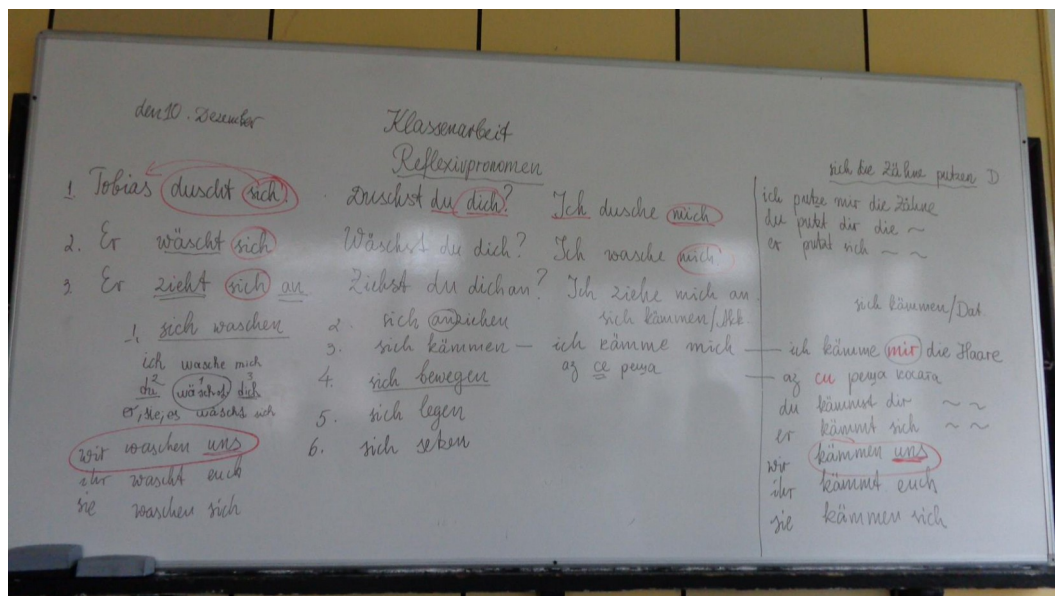 den 10. Dezember
Klassenarbeit
Reflexivpronomen
1. Tobias duscht sich. Duschst du dich? Ich dusche mich
2. Er wäscht sich Wäschst du dich? Ich wasche mich
3 Er zieht sich an Ziehst du dich an? Ich ziehe mich an
1. sich waschen
ich wasche mich
du wäschst dich
2 1 3
er, sie, es wäscht sich
wir waschen uns
ihr wascht euch
sie waschen sich
2. sich anziehen
3. sich kämmen — ich kämme mich
4. sich bewegen
5. sich legen
6. sich setzen
sich kämmen/Akk.
аз се реша
sich die Zähne putzen D
ich putze mir die Zähne
du putzt dir die ~
er putzt sich ~ ~
sich kämmen/Dat
— ich kämme mir die Haare
— аз си реша косата
du kämmst dir ~ ~
er kämmt sich ~ ~
wir kämmen uns
ihr kämmt euch
sie kämmen sich